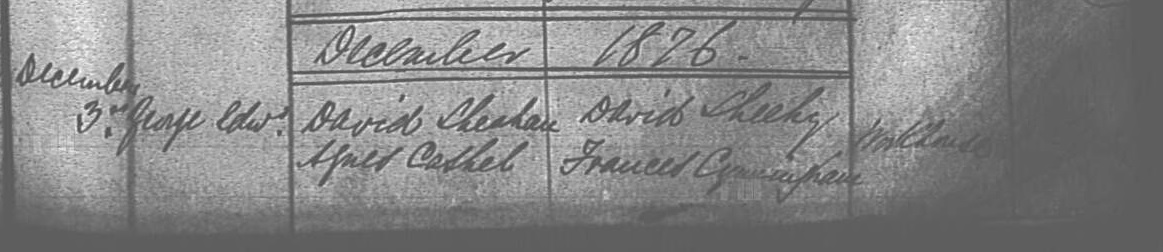 December 1876.
December
3rd George Edwd. David Sheahan David Sheehy Workhouse
Agnes Cashel Frances Cunningham